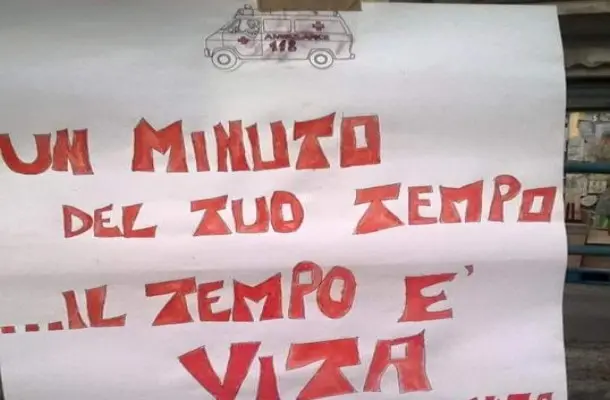 AMBULANCE
118
UN MINUTO
DEL TUO TEMPO
....IL TEMPO E'
VITA